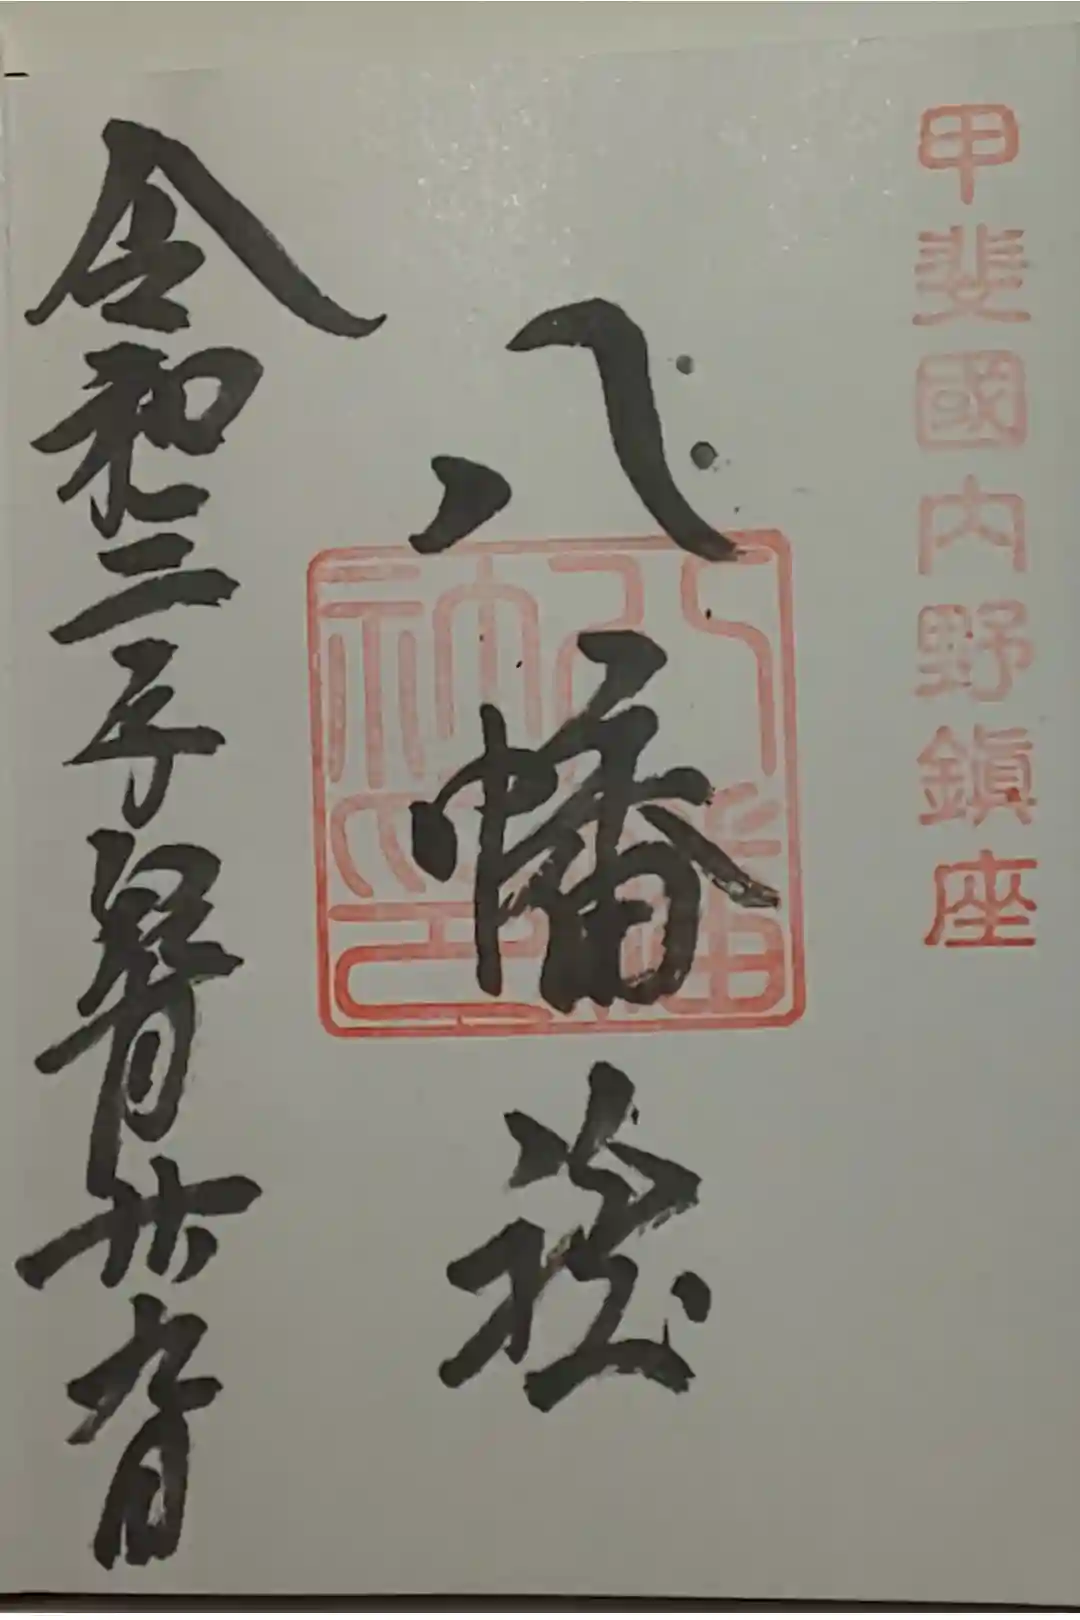 甲斐國内野鎮座
八幡
八幡神印
令和三年 月廿九日